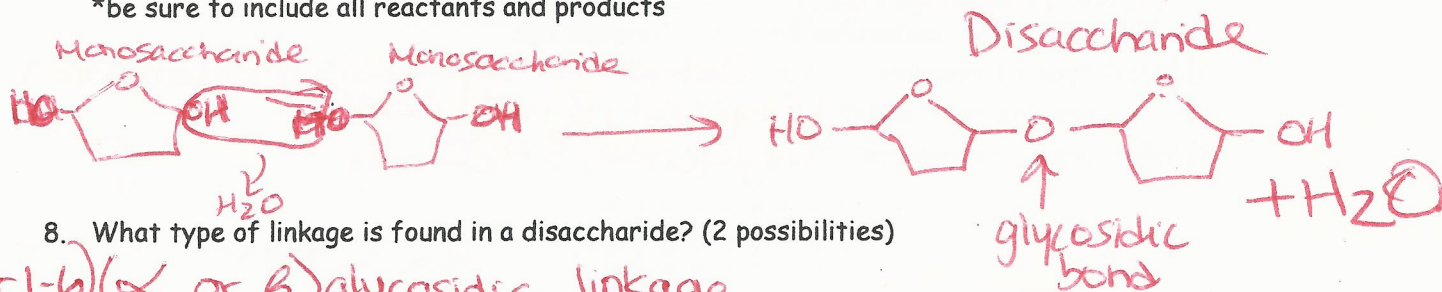 *be sure to include all reactants and products
Monosaccharide Monosaccharide Disaccharide
HO O OH HO O OH HO O O O OH
H2O + H2O
8. What type of linkage is found in a disaccharide? (2 possibilities)
glycosidic
bond
(α or β) glycosidic linkage